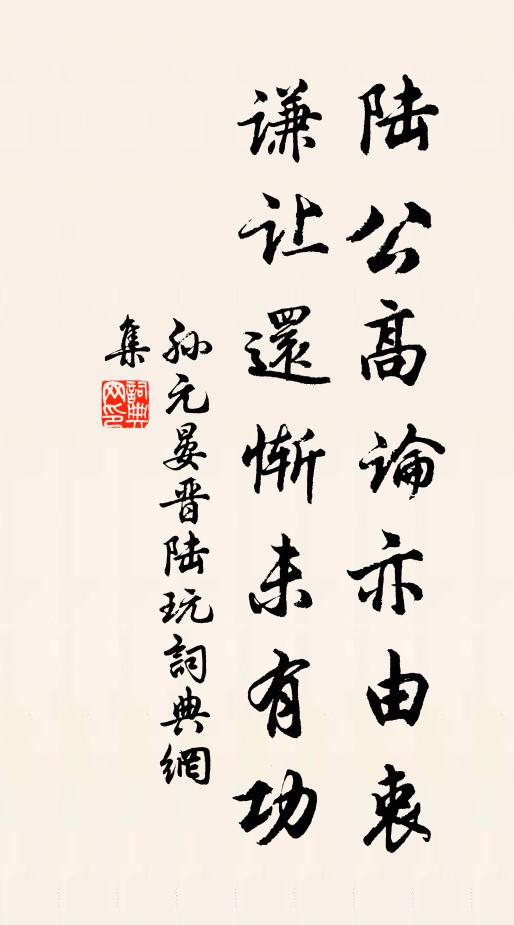 陆公高论亦由衷
谦让還惭未有功
孙元晏晋陆玩詞典網
集
詞典
网印